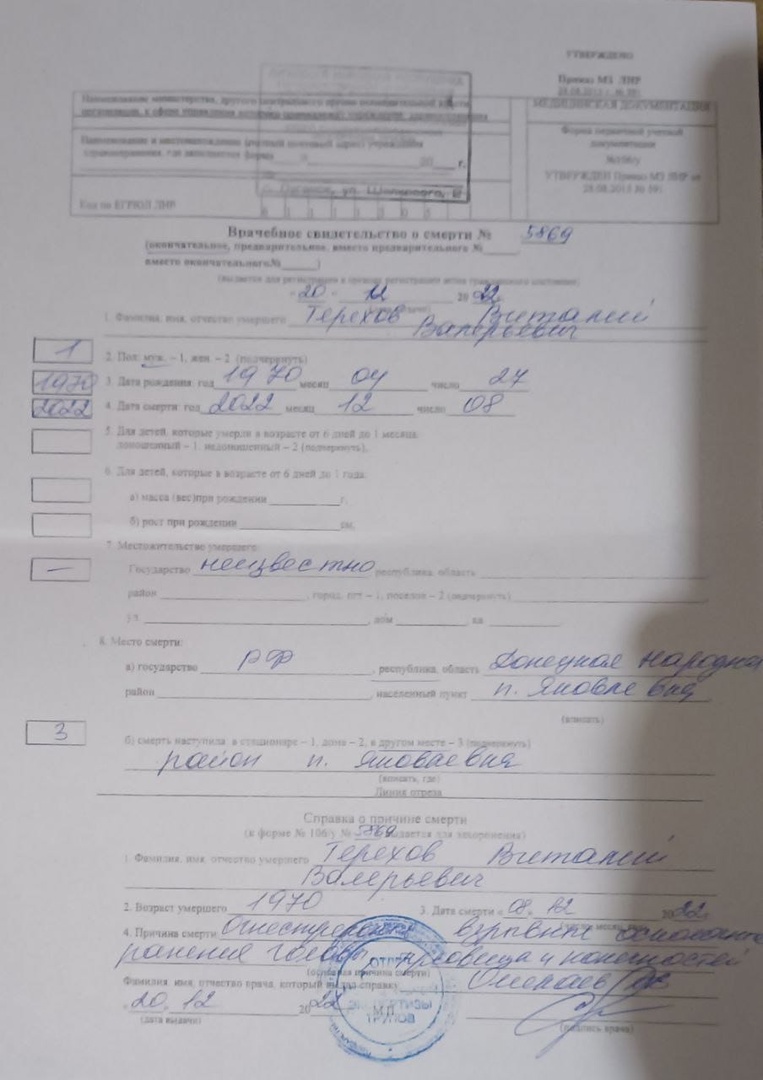 УТВЕРЖДЕНО
Приказ МЗ ЛНР
28.08.2015 г. №
Наименование министерства, другого центрального органа исполнительной власти
МЕДИЦИНСКАЯ ДОКУМЕНТАЦИЯ
Форма первичной учетной
документации
№106/у
УТВЕРЖДЕН Приказ МЗ ЛНР от
28.08.2015 №
20 г.
г. Луганск, ул.
Код по ЕГРЮЛ ЛНР
Врачебное свидетельство о смерти № 5869
(окончательное, предварительное, вместо предварительного №
вместо окончательного№ )
(выдается для регистрации в органах регистрации актов гражданского состояния)
«20» 12 20 22
1. Фамилия, имя, отчество умершего Терехов Виталий
Валерьевич
1 2. Пол: муж. – 1, жен. – 2 (подчеркнуть)
1970 3. Дата рождения: год 1970 месяц 04 число 27
2022 4. Дата смерти: год 2022 месяц 12 число 08
5. Для детей, которые умерли в возрасте от 6 дней до 1 месяца:
доношенный – 1, недоношенный – 2 (подчеркнуть),
6. Для детей, которые в возрасте от 6 дней до 1 года:
а) масса (вес)при рождении г.
б) рост при рождении см.
7. Местожительство умершего:
— Государство неизвестно республика, область
район , город, пгт – 1, поселок – 2 (подчеркнуть)
ул. , дом кв.
8. Место смерти:
а) государство РФ , республика, область Донецкая народная
район , населенный пункт п. Яковлевка
(вписать)
3 б) смерть наступила: в стационаре – 1, дома – 2, в другом месте – 3 (подчеркнуть)
район п. Яковлевка
(вписать, где)
Линия отреза
Справка о причине смерти
(к форме № 106/у № 5869 выдается для захоронения)
1. Фамилия, имя, отчество умершего Терехов Виталий
Валерьевич
2. Возраст умершего 1970 3. Дата смерти «08» 12 2022
4. Причина смерти взрывные
ранения головы, туловища и конечностей
(основная причина смерти)
Фамилия, имя, отчество врача, который выдал справку
«20» 12 20 22 М.П.
(дата выдачи) (подпись врача)
ОТДЕЛ
ЭКСПЕРТИЗЫ
ТРУПОВ